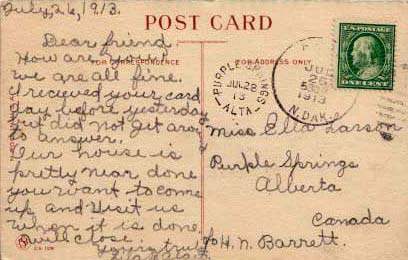 July, 26, 1913.
POST CARD
FOR CORRESPONDENCE
FOR ADDRESS ONLY
Dear friend,
How are you?
we are all fine.
I recieved your card
day before yesterday
but did not get around
to answer.
Our house is
pretty near done
do you want to come
up and visit us
when it is done.
I will close.
Yours truly
U.S. POSTAGE
PURPLE SPRINGS
JUL 28
13
ALTA.
JUL
26
1913
N. DAK.
Miss Ella Larson
Purple Springs
Alberta
Canada
c/o H. N. Barrett.